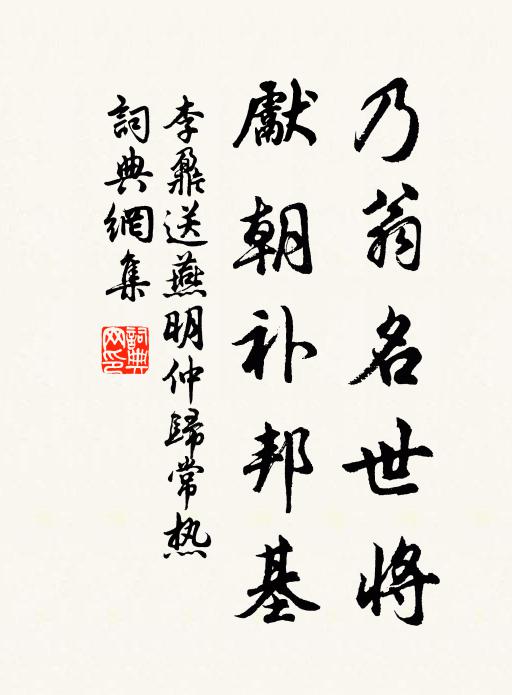 乃翁名世將
獻朝补邦基
李鼐送燕明仲歸常熱
詞典網集
詞典網印